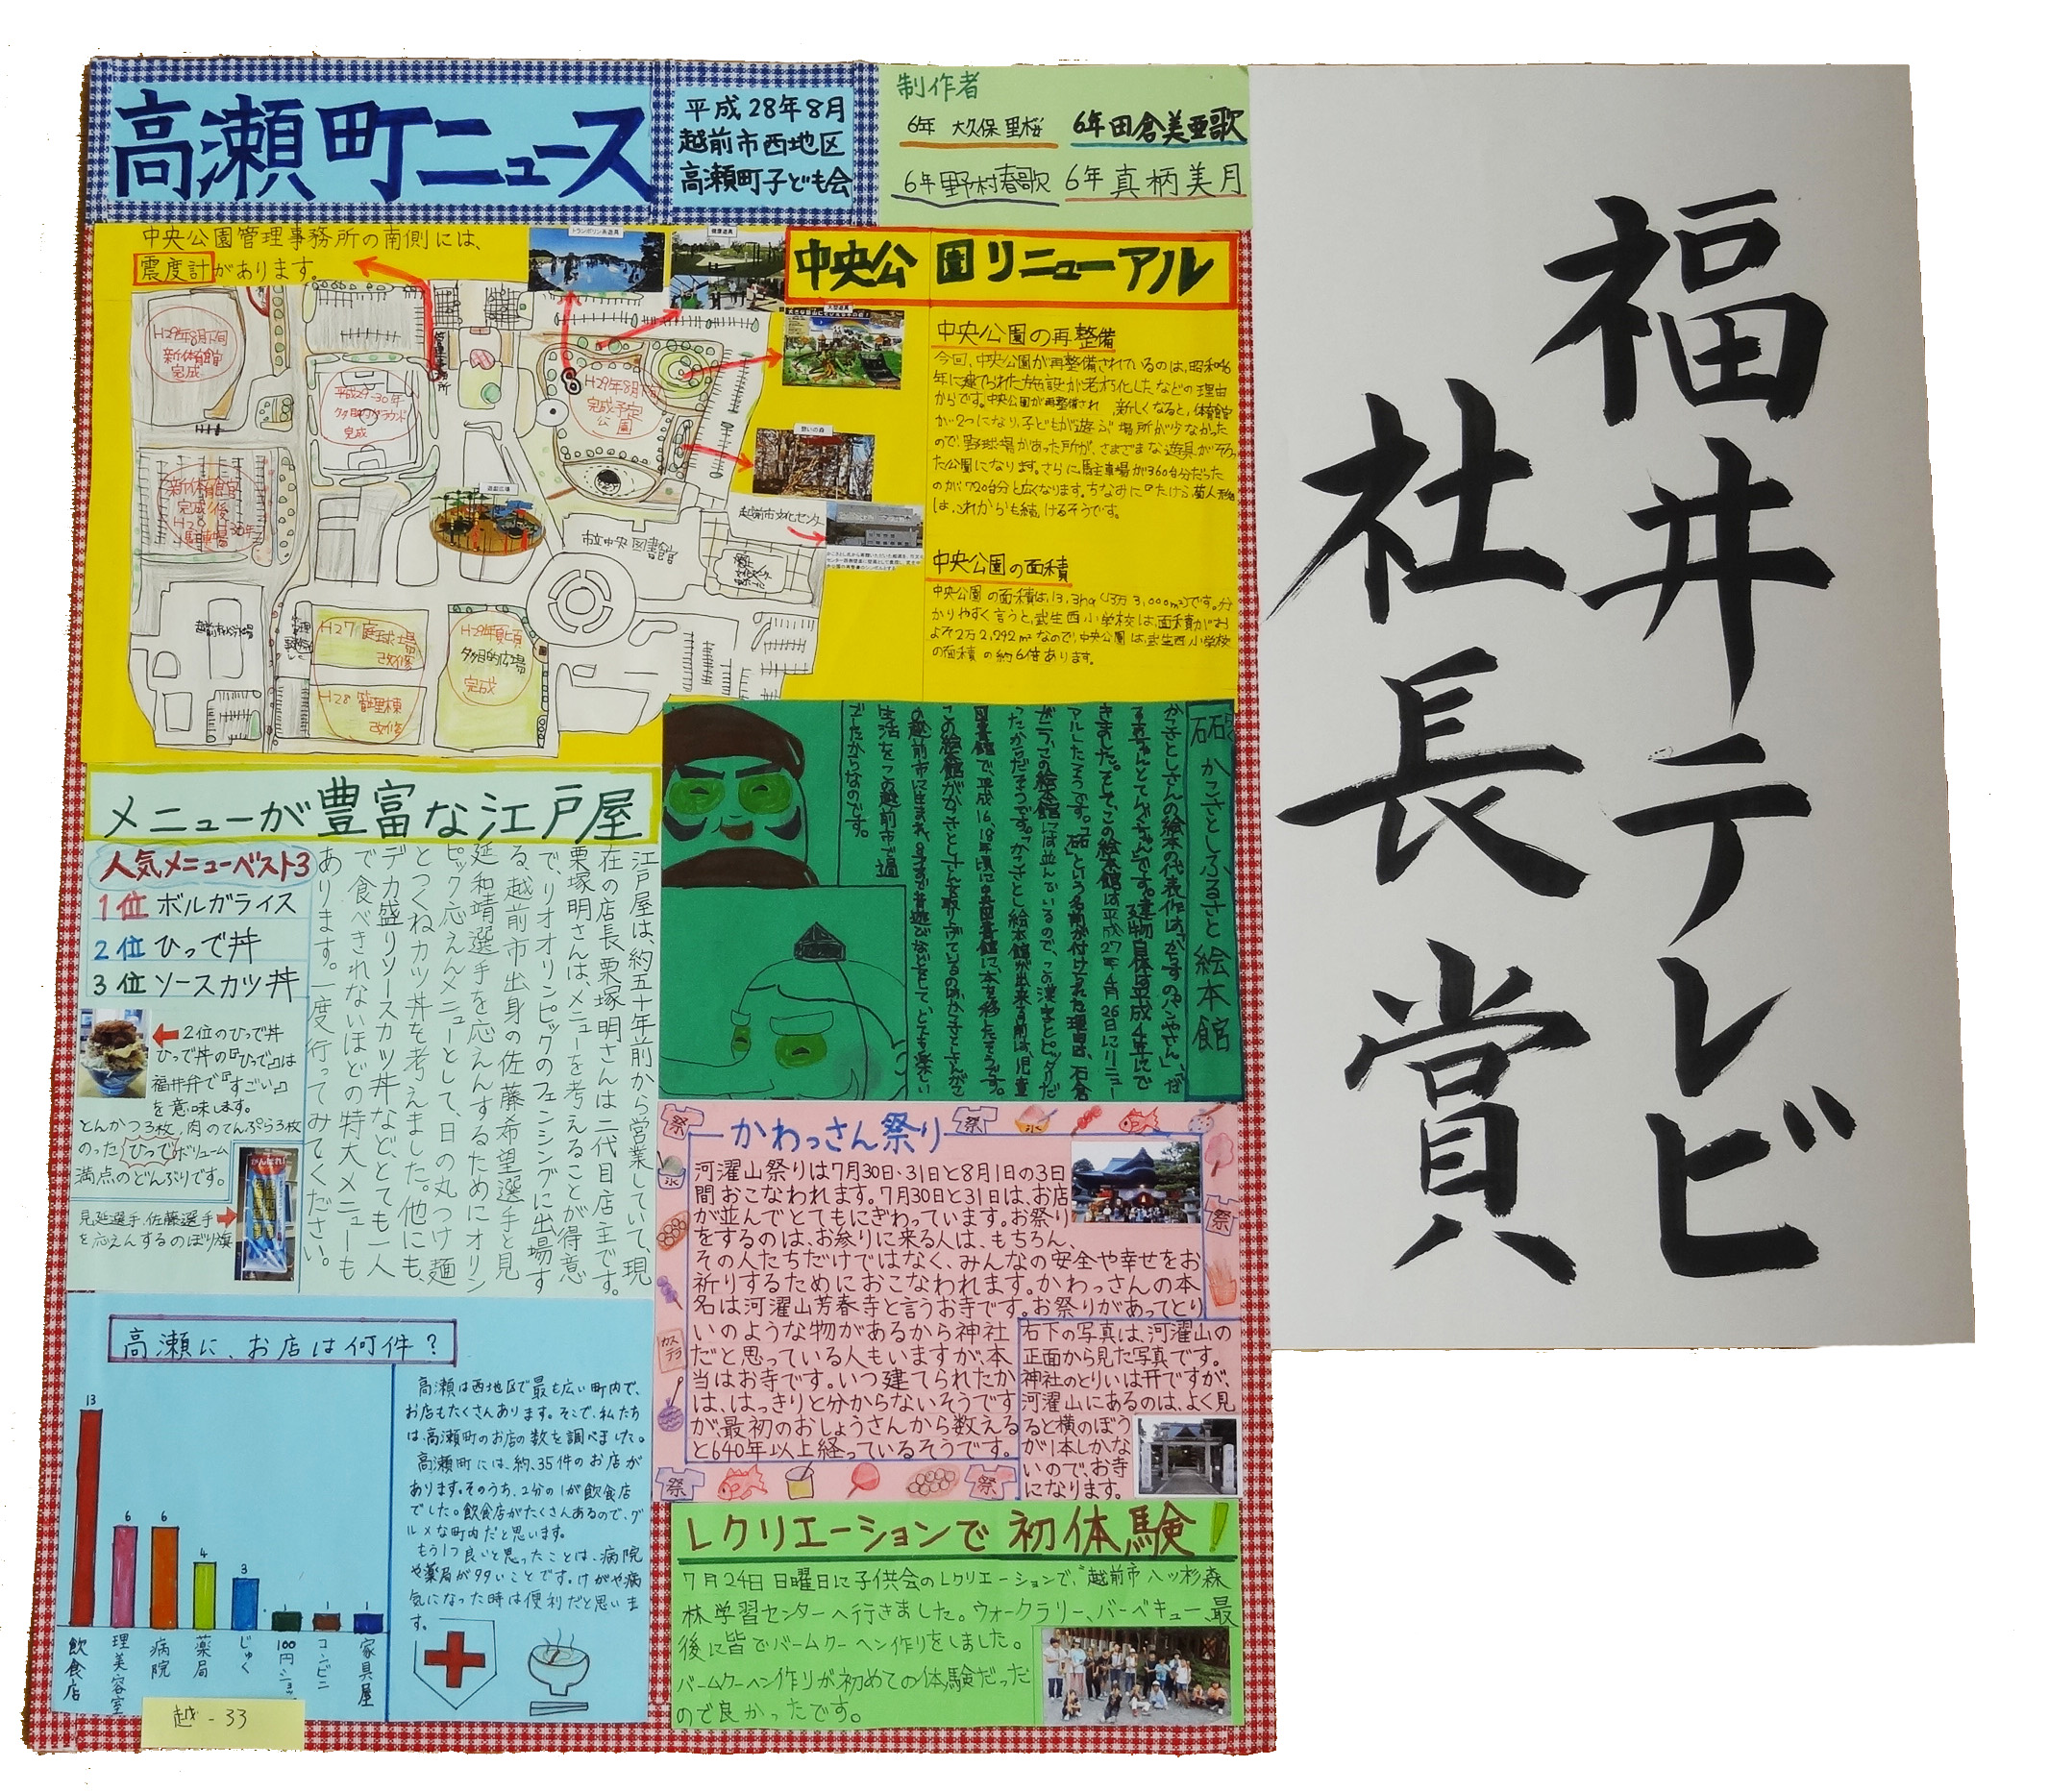 高瀬町ニュース
平成28年8月
越前市西地区
高瀬町子ども会
制作者
6年 大久保里桜 6年田倉美亜歌
6年野村春歌 6年真柄美月
中央公園管理事務所の南側には、
震度計があります。
トランポリン系遊具
健康遊具
中央公園リニューアル
中央公園の再整備
今回、中央公園が再整備されているのは、昭和46
年に建てられた施設が老朽化したなどの理由
からです。中央公園が再整備され、新しくなると、体育館
が2つになり、子どもが遊ぶ場所が少なかった
ので、野球場があった所が、さまざまな遊具がそろっ
た公園になります。さらに、駐車場が360台分だった
のが720台分と広くなります。ちなみに『たけふ菊人形』
は、これからも続けるそうです。
中央公園の面積
中央公園の面積は、13.3ha(13万3,000m²)です。分
かりやすく言うと、武生西小学校は、面積がお
よそ2万2,292m²なので、中央公園は、武生西小学校
の面積の約6倍あります。
H29年8月下旬
新体育館
完成
平成29-30年
多目的グラウンド
完成
管理事務所
H29年8月下旬
完成予定
公園
憩いの森
新体育館
完成後
駐車場
遊副広場
市立中央図書館
越前市文化センター
H27 庭球場
改修
H28 管理棟
改修
H29年頃
多目的広場
完成
メニューが豊富な江戸屋
人気メニューベスト3
1位 ボルガライス
2位 ひっで丼
3位 ソースカツ丼
2位のひっで丼
ひっで丼の『ひっで』は
福井弁で『すごい』
を意味します。
とんかつ3枚、肉のてんぷら3枚
のった ひっで ボリューム
満点のどんぶりです。
見延選手、佐藤選手
を応えんするのぼり旗
江戸屋は、約五十年前から営業していて、現
在の店長 栗塚明さんは二代目店主です。
栗塚明さんは、メニューを考えることが得意
で、リオオリンピックのフェンシングに出場す
る、越前市出身の佐藤希望選手と見
延和靖選手を応えんするためにオリン
ピック応えんメニューとして、日の丸つけ麺
とつくねカツ丼を考えました。他にも、
デカ盛りソースカツ丼など、とても一人
で食べきれないほどの特大メニューも
あります。一度行ってみてください。
砳 かこさとしふるさと絵本館
かこさとしさんの絵本の代表作は、「からすのパンやさん」、「だ
るまちゃんとてんぐちゃん」です。建物自体は平成4年にで
きました。そして、この絵本館は平成27年4月26日にリニュー
アルしたそうです。「砳」という名前が付けられた理由は、石倉
かわっさん祭り
河濯山祭りは7月30日・31日と8月1日の3日
間おこなわれます。7月30日と31日は、お店
が並んでとてもにぎわっています。お祭り
をするのは、お参りに来る人は、もちろん、
その人たちだけではなく、みんなの安全や幸せをお
祈りするためにおこなわれます。かわっさんの本
名は河濯山芳春寺と言うお寺です。お祭りがあってとり
いのような物があるから神社
だと思っている人もいますが、本
当はお寺です。いつ建てられたか
は、はっきりと分からないそうです
が、最初のおしょうさんから数える
と640年以上経っているそうです。
右下の写真は、河濯山の
正面から見た写真です。
神社のとりいは开ですが、
河濯山にあるのは、よく見
ると横のぼう
が1本しかな
いので、お寺
になります。
祭
祭
氷
氷
祭
カステラ
祭
祭
高瀬に、お店は何件?
13
6
6
4
3
1
1
1
飲食店
理美容室
病院
薬局
じゅく
100円ショップ
コンビニ
家具屋
高瀬は西地区で最も広い町内で、
お店もたくさんあります。そこで、私たち
は、高瀬町のお店の数を調べました。
高瀬町には、約、35件のお店が
あります。そのうち、2分の1が飲食店
でした。飲食店がたくさんあるので、グ
ルメな町内だと思います。
もう1つ良いと思ったことは、病院
や薬局が多いことです。けがや病
気になった時は便利だと思いま
す。
越-33
レクリエーションで初体験!
7月24日日曜日に子供会のレクリエーションで、越前市八ッ杉森
林学習センターへ行きました。ウォークラリー、バーベキュー、最
後に皆でバームクーヘン作りをしました。
バームクーヘン作りが初めての体験だった
ので良かったです。
福井テレビ
社長賞